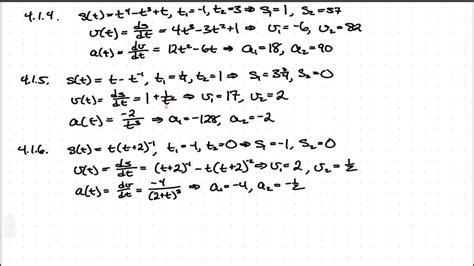 4.1.4. s(t)=t⁴-t³+t, t₁=-1, t₂=3 ⇒ s₁=1, s₂=57
v(t)=ds/dt = 4t³-3t²+1 ⇒ v₁=-6, v₂=82
a(t)=dv/dt = 12t²-6t ⇒ a₁=18, a₂=90
4.1.5. s(t)=t-t⁻¹, t₁=1/4, t₂=1 ⇒ s₁=3¾, s₂=0
v(t)=ds/dt = 1+1/t² ⇒ v₁=17, v₂=2
a(t)=-2/t³ ⇒ a₁=-128, a₂=-2
4.1.6. s(t)=t(t+2)⁻¹, t₁=-1, t₂=0 ⇒ s₁=-1, s₂=0
v(t)=ds/dt = (t+2)⁻¹-t(t+2)⁻² ⇒ v₁=2, v₂=1/2
a(t)=dv/dt = -4/(2+t)³ ⇒ a₁=-4, a₂=-1/2